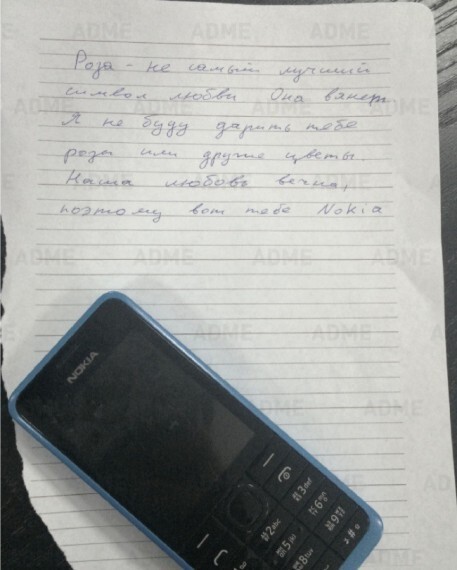 ADME ADME ADME
Роза - не самый лучший
символ любви Она вянет.
Я не буду дарить тебе
розы или другие цветы.
Наша любовь вечна,
поэтому вот тебе Nokia
ADME ADME ADME
ADME ADME
ADME
NOKIA
3
6
9
2
5
8